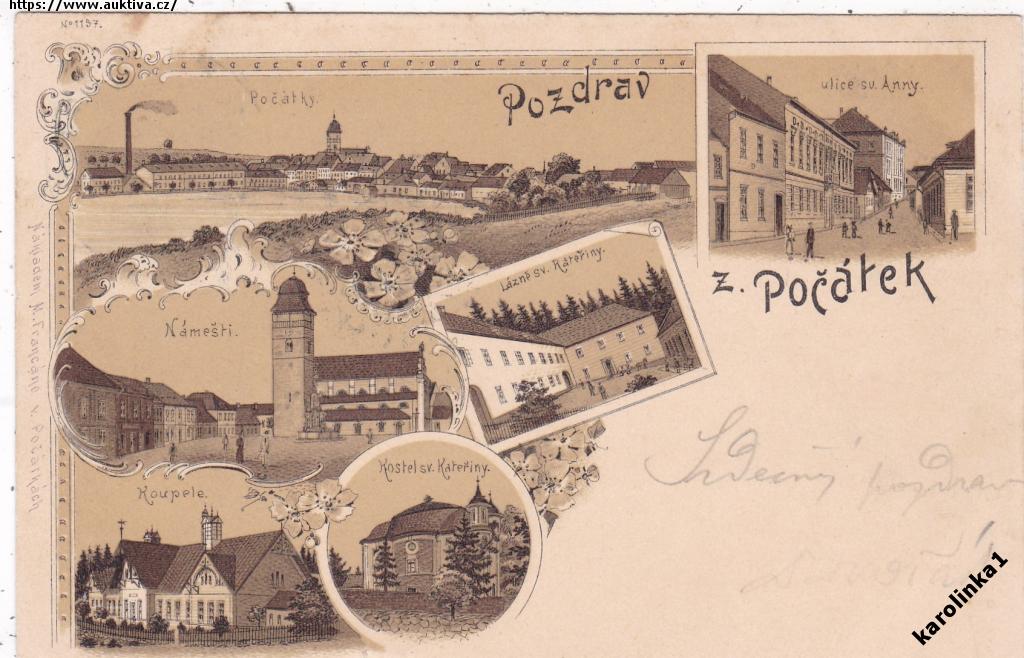 https://www.auktiva.cz/
No 1197.
Počátky.
Pozdrav
ulice sv. Anny.
z. Počátek
Lázně sv. Kateřiny.
Náměstí.
Koupele.
Kostel sv. Kateřiny.
Nákladem M. v Počátkách
Srdečný pozdrav
karolinka1